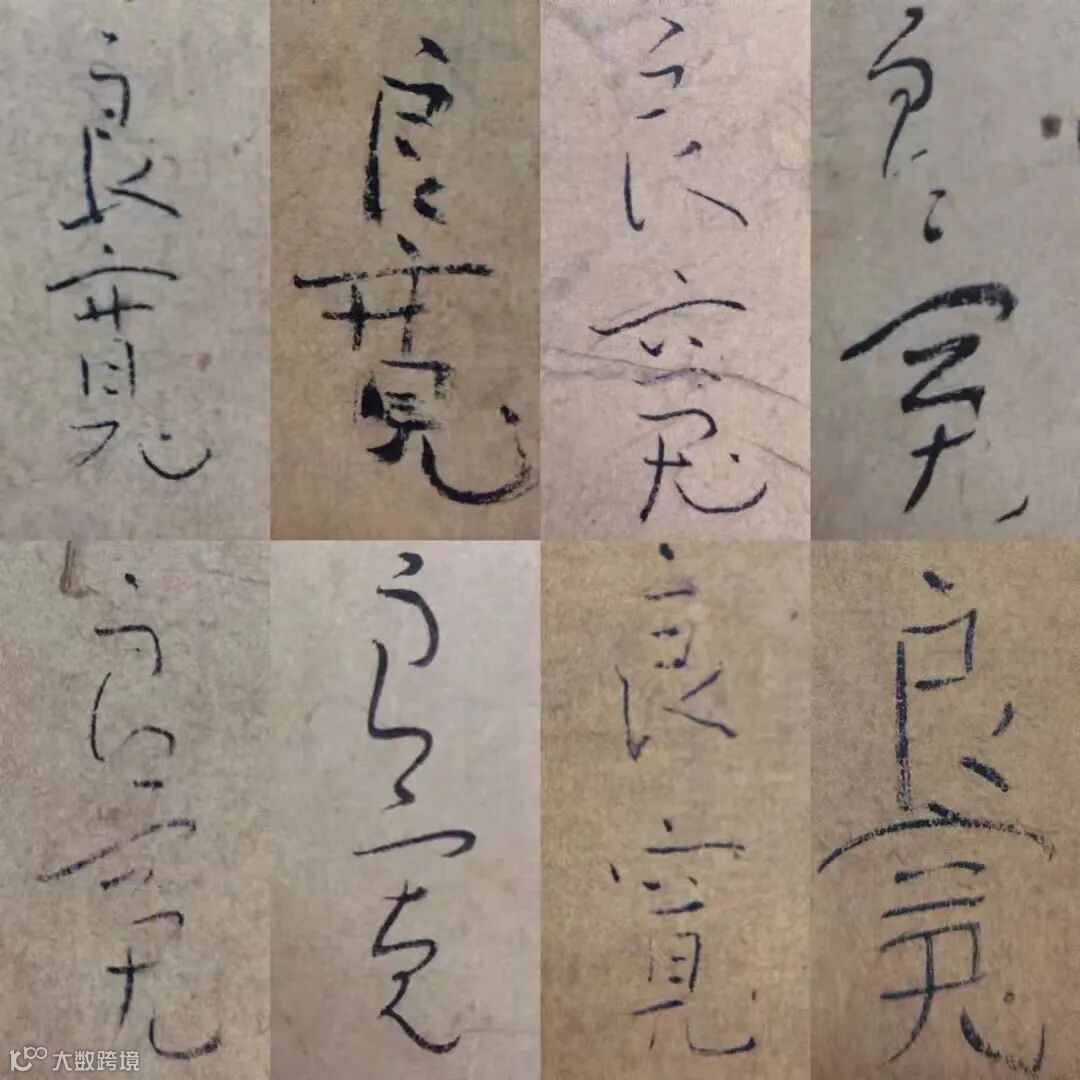 良寛
良寛
良寛
良寛
良寛
良寛
良寛
良寛
大数跨境